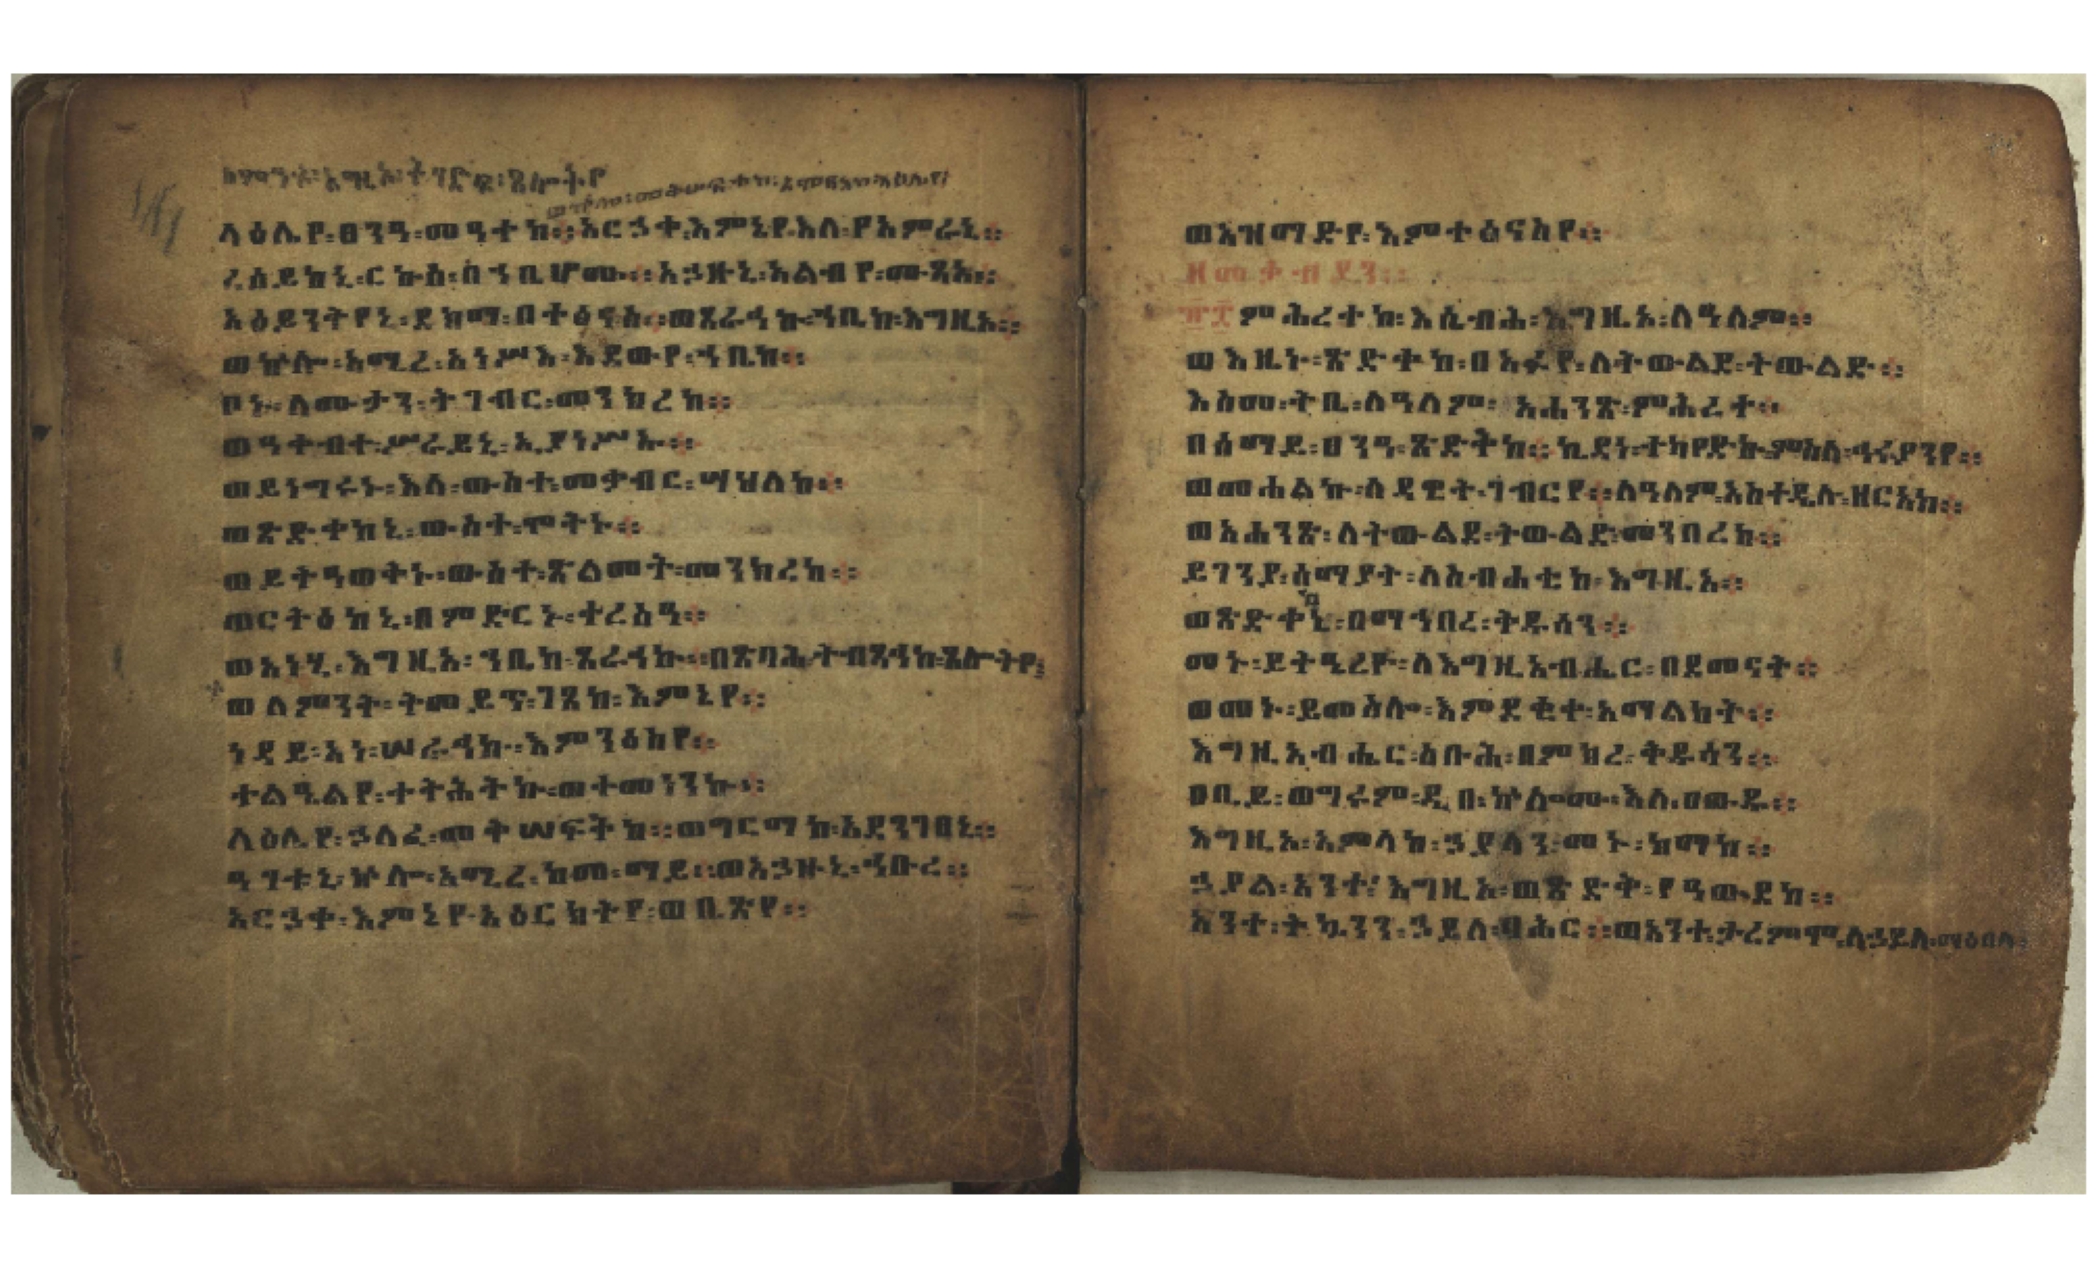 ላዕሌየ፡ፀንዓ፡መዓትከ፨አርኃቀ፡እምኔየ፡እለ፡የአምሩኒ፨
ረሰይከኒ፡ርኩሰ፡በኀቢሆሙ፨አኃዙኒ፡አልብየ፡ሙጻአ፨
አዕይንትየኒ፡ደክማ፡በተፅናስ፨ወጸራኅኩ፡ኀቤከ፡እግዚኦ፨
ወኵሎ፡አሚረ፡አነሥእ፡እደውየ፡ኀቤከ፨
ቦኑ፡ለሙታን፡ትገብር፡መንክረከ፨
ወዓቀብተ፡ሥራይኒ፡ኢያነሥኡ፨
ወይነግሩኑ፡እለ፡ውስተ፡መቃብር፡ሣህለከ፨
ወጽድቀከኒ፡ውስተ፡ሞትኑ፨
ወይትዓወቅኑ፡ውስተ፡ጽልመት፡መንክረከ፨
ወርትዕከኒ፡በምድርኑ፡ተረስዓ፨
ወአነሂ፡እግዚኦ፡ኀቤከ፡ጸራኅኩ፨በጽባሕ፡ትብጻኅከ፡ጸሎትየ፨
ወለምንት፡ትመይጥ፡ገጸከ፡እምኔየ፨
ነዳይ፡አነ፡ሠራኅኩ፡እምንዕስየ፨
ተልዒልየ፡ተትሕትኩ፡ወተመነንኩ፨
ላዕሌየ፡ኃለፈ፡መቅሠፍትከ፨ወግርማከ፡አደንገፀኒ፨
ዓገቱኒ፡ኵሎ፡አሚረ፡ከመ፡ማይ፨ወአኃዙኒ፡ኅቡረ፨
አርኃቀ፡እምኔየ፡አዕርክትየ፡ወቢጽየ፨
ወአዝማድየ፡እምተፅናስየ፨
፹፰ምሕረተከ፡እሴብሕ፡እግዚኦ፡ለዓለም፨
ወእዜኑ፡ጽድቀከ፡በአፉየ፡ለትውልደ፡ትውልድ፨
እስመ፡ትቤ፡ለዓለም፡አሐንጽ፡ምሕረተ፨
በሰማይ፡ፀንዓ፡ጽድቅከ፨ኪዳነ፡ተካየድኩ፡ምስለ፡ኅሩያንየ፨
ወመሐልኩ፡ለዳዊት፡ገብርየ፨ለዓለም፡አስተዴሉ፡ዘርአከ፨
ወአሐንጽ፡ለትውልደ፡ትውልድ፡መንበረከ፨
ይገንያ፡ሰማያት፡ለስብሐቲከ፡እግዚኦ፨
ወጽድቀኒ፡በማኅበረ፡ቅዱሳን፨
መኑ፡ይትዔረዮ፡ለእግዚአብሔር፡በደመናት፨
ወመኑ፡ይመስሎ፡እምደቂቀ፡አማልክት፨
እግዚአብሔር፡ስቡሕ፡በምክረ፡ቅዱሳን፨
ዐቢይ፡ወግሩም፡ዲበ፡ኵሎሙ፡እለ፡ዐውዱ፨
እግዚኦ፡አምላከ፡ኃያላን፡መኑ፡ከማከ፨
ኃያል፡አንተ፡እግዚኦ፡ወጽድቅ፡የዓውደከ፨
አንተ፡ትኴንን፡ኃይለ፡ባሕር፨ወአንተ፡ታረምሞ፡ለኃይለ፡ማዕበላ፨